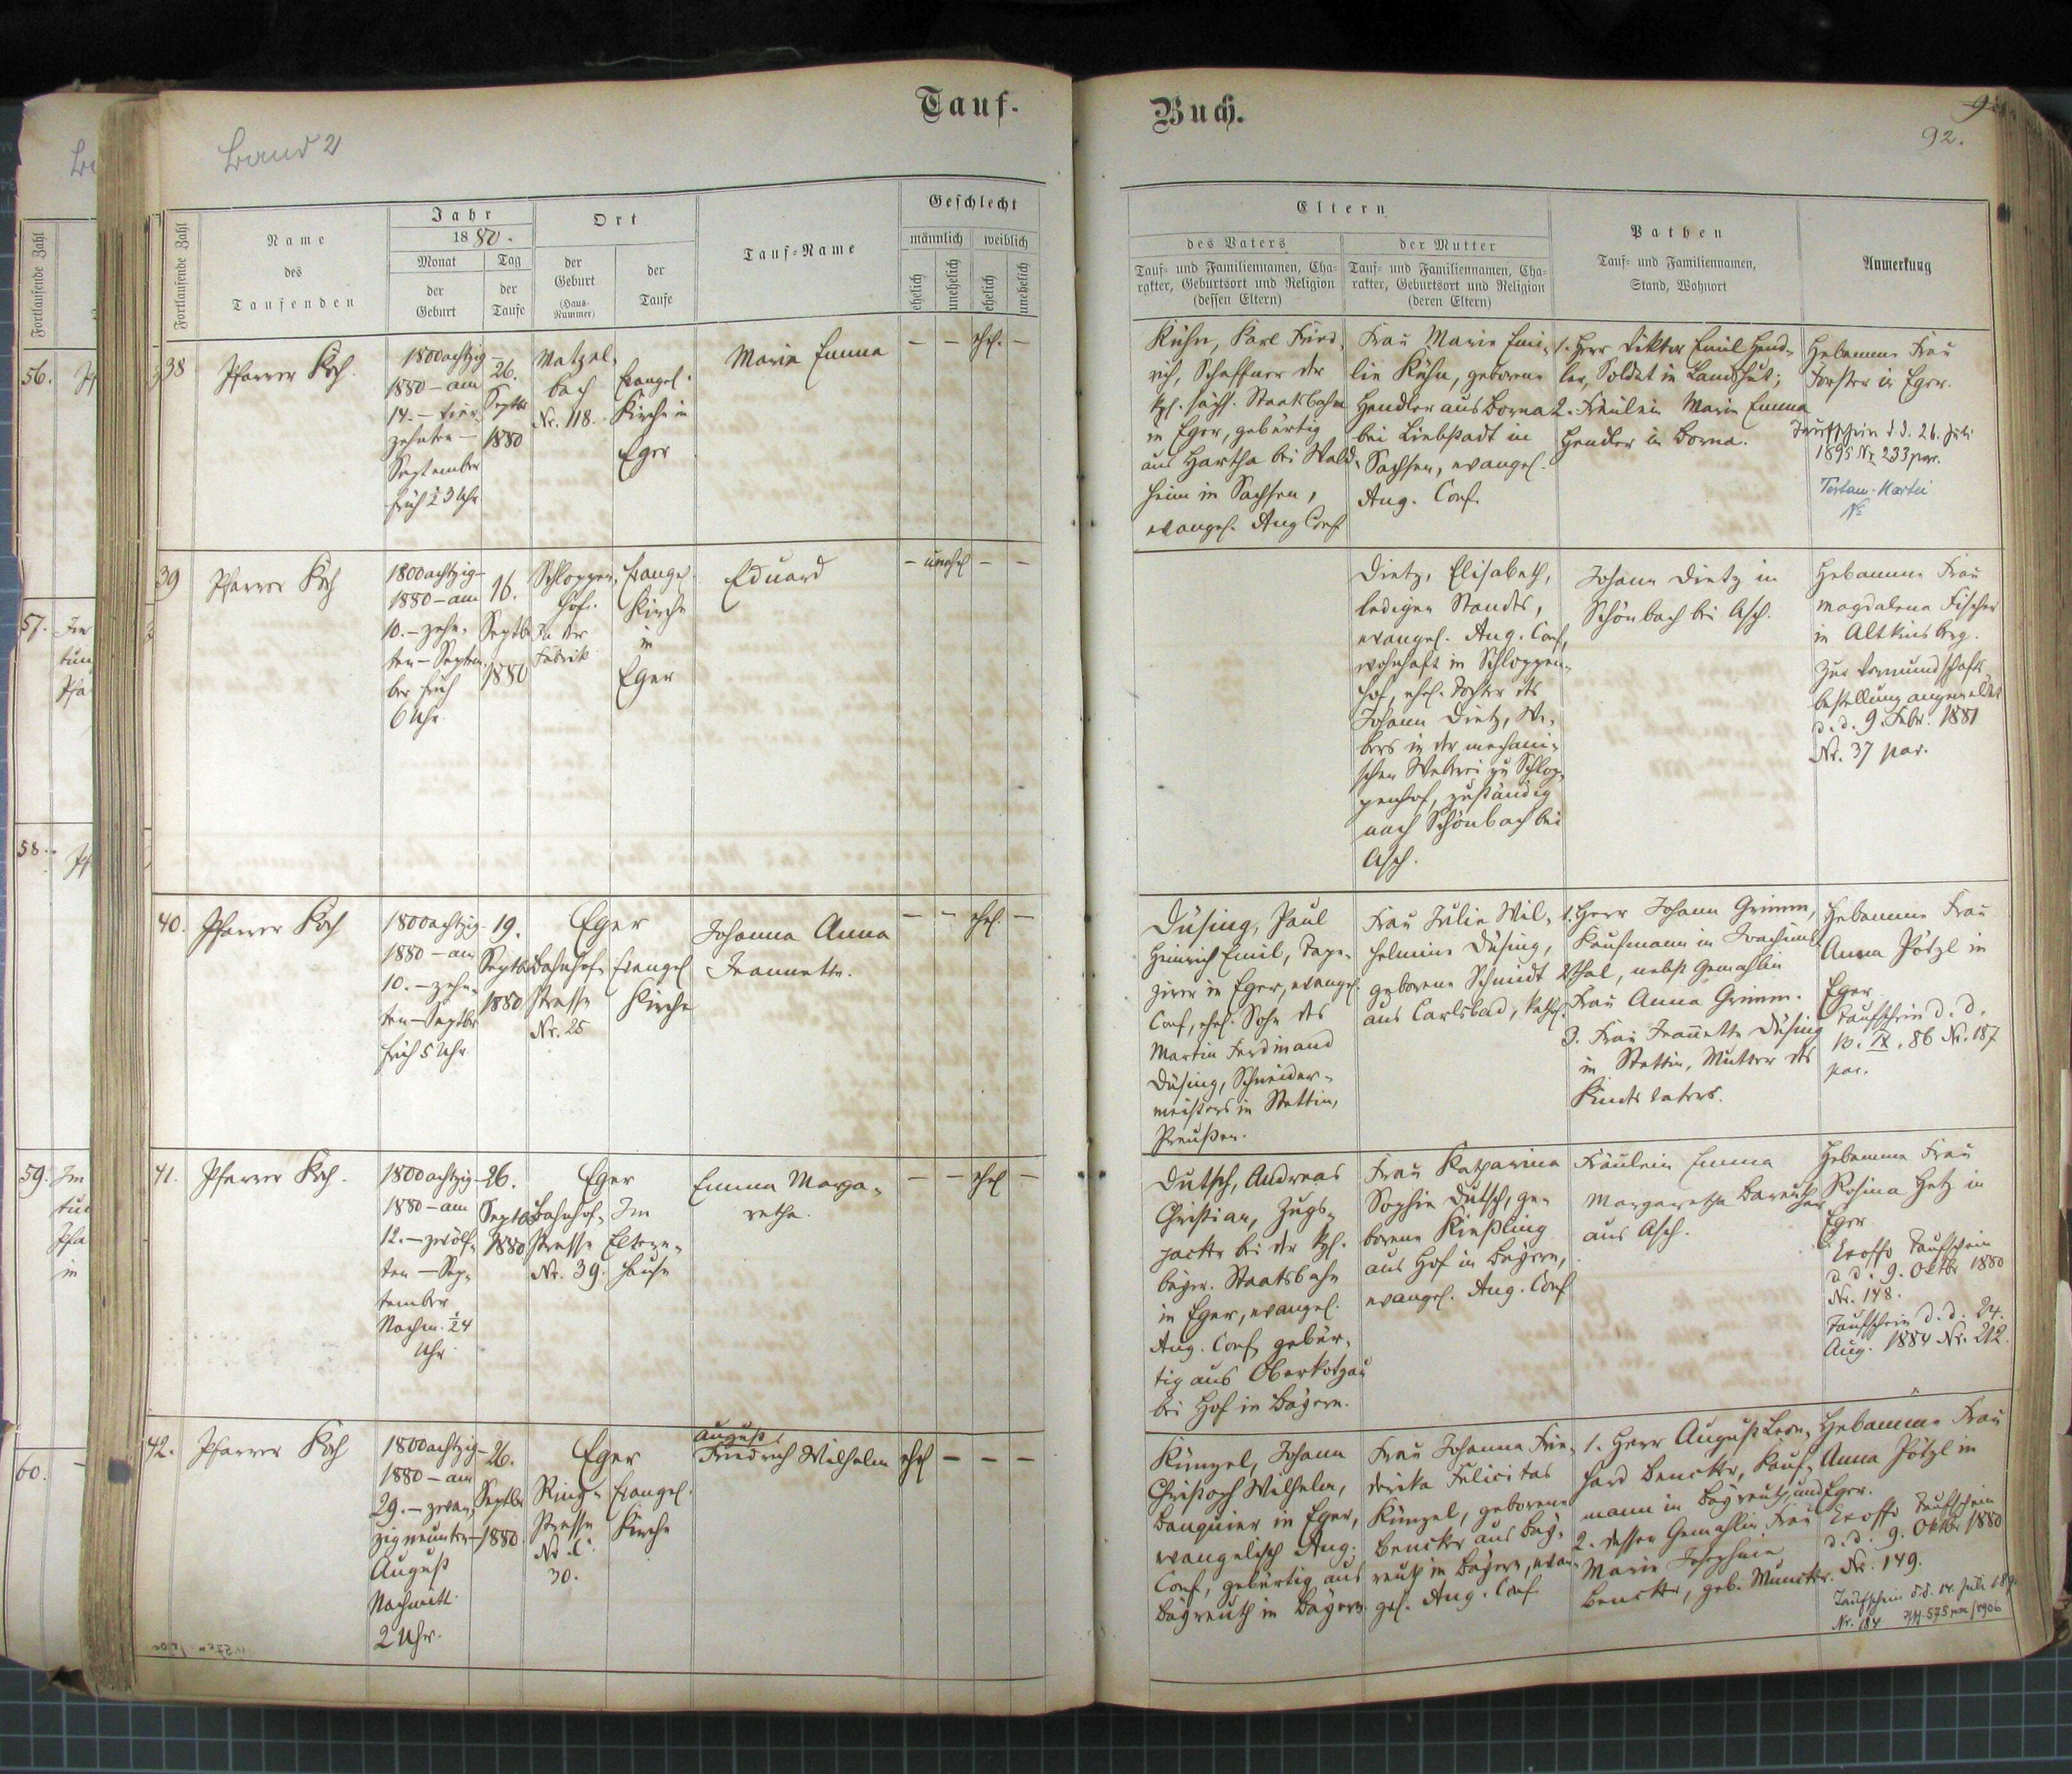 Tauf-
Buch.
92.
Band 2
Fortlaufende Zahl
Name
des
Taufenden
Jahr
1880.
Monat
der
Geburt
Tag
der
Taufe
Ort
der
Geburt
(Haus-
Nummer)
der
Taufe
Tauf-Name
Geschlecht
männlich
weiblich
ehelich
unehelich
ehelich
unehelich
Eltern
des Vaters
Tauf- und Familiennamen, Cha-
rakter, Geburtsort und Religion
(dessen Eltern)
der Mutter
Tauf- und Familiennamen, Cha-
rakter, Geburtsort und Religion
(deren Eltern)
Pathen
Tauf- und Familiennamen,
Stand, Wohnort
Anmerkung
38
Pfarrer Koch.
1800achtzig-
1880 – am
14. – vier-
zehnten –
September
früh ½3 Uhr
26.
Septbr
1880
Matzel-
bach
Nr. 118.
Evangel.
Kirche in
Eger
Maria Emma
– – ehel. –
Kühn, Karl Fried-
rich, Schaffner der
kgl. sächs. Staatsbahn
in Eger, gebürtig
aus Hartha bei Wald-
heim in Sachsen,
evangel. Aug Conf
Frau Marie Emi-
lie Kühn, geborene
Hendler aus Borna
bei Liebstadt in
Sachsen, evangel.
Aug. Conf.
1. Herr Viktor Emil Hend-
ler, Soldat in Landshut;
2. Fräulein Marie Emma
Hendler in Borna.
Hebamme Frau
Forster in Eger.
Taufschein d.d. 26. Juli
1895 Nr 233 par.
39
Pfarrer Koch
1800achtzig-
1880 – am
10. – zehn-
ten – Septem-
ber früh
6 Uhr.
16.
Septbr
1880
Schloppen-
hof.
In der
Fabrik
Evangel.
Kirche
in
Eger
Eduard
– unehel – –
Dietz, Elisabeth,
ledigen Standes,
evangel. Aug. Conf,
wohnhaft in Schloppen-
hof, ehel. Tochter des
Johann Dietz, We-
bers in der mechani-
schen Weberei zu Schlop-
penhof, zuständig
nach Schönbach bei
Asch.
Johann Dietz in
Schönbach bei Asch.
Hebamme Frau
Magdalena Fischer
in Altkinsberg.
Zur Vormundschafts-
bestellung angemeldet
d.d. 9. Febr. 1881
Nr. 37 par.
40.
Pfarrer Koch
1800achtzig-
1880 – am
10. – zehn-
ten – Septbr
früh 5 Uhr
19.
Septbr
1880
Eger
Bahnhof-
strasse
Nr. 25
Evangel
Kirche
Johanna Anna
Jeannette.
– – ehel. –
Düsing, Paul
Heinrich Emil, Tape-
zirer in Eger, evangel.
Conf, ehel. Sohn des
Martin Ferdinand
Düsing, Schneider-
meisters in Stettin,
Preußen.
Frau Julie Wil-
helmine Düsing,
geborene Schmidt
aus Carlsbad, kathol.
1. Herr Johann Grimm,
Kaufmann in Joachims-
2. thal, nebst Gemahlin
Frau Anna Grimm.
3. Frau Jeannette Düsing
in Stettin, Mutter des
Kindsvaters.
Hebamme Frau
Anna Pötzl in
Eger
Taufschein d. d.
10. IX. 86 Nr. 187
par.
41.
Pfarrer Koch.
1800achtzig-
1880 – am
12. – zwölf-
ten – Sep-
tember
Nachm. ½4
Uhr
26.
Septbr
1880
Eger
Bahnhof-
strasse
Nr. 39.
Im
Eltern-
hause
Emma Marga-
retha.
– – ehel –
Dutsch, Andreas
Christian, Zugs-
packer bei der kgl.
bayer. Staatsbahn
in Eger, evangel.
Aug. Conf, gebür-
tig aus Oberkotzau
bei Hof in Bayern.
Frau Katharina
Sophie Dutsch, ge-
borene Kießling
aus Hof in Bayern,
evangel. Aug. Conf
Fräulein Emma
Margaretha Bareuther
aus Asch.
Hebamme Frau
Rosina Hetz in
Eger
Exoffo Taufschein
d. d. 9. Oktbr 1880
Nr. 148.
Taufschein d. d. 24.
Aug. 1884 Nr. 212.
42.
Pfarrer Koch
1800achtzig-
1880 – am
29. – zwan-
zigneunten –
August
Nachmitt.
2 Uhr.
26.
Septbr
1880.
Eger
Ring-
strasse
30.
Evangel.
Kirche
August
Friedrich Wilhelm
ehel – – –
Künzel, Johann
Christoph Wilhelm,
Banquier in Eger,
evangelisch Aug.
Conf, gebürtig aus
Bayreuth in Bayern.
Frau Johanna Frie-
derika Felicitas
Künzel, geborene
Bencker aus Bay-
reuth in Bayern, evan-
gel. Aug. Conf
1. Herr August Leon-
hard Bencker, Kauf-
mann in Bayreuth, und
2. dessen Gemahlin Frau
Marie Josephine
Bencker, geb. Muncker.
Hebamme Frau
Anna Pötzl in
Eger.
Exoffo Taufschein
d. d. 9. Oktbr 1880
Nr. 149.
Nr. 184
56.
57.
58.
59.
60.